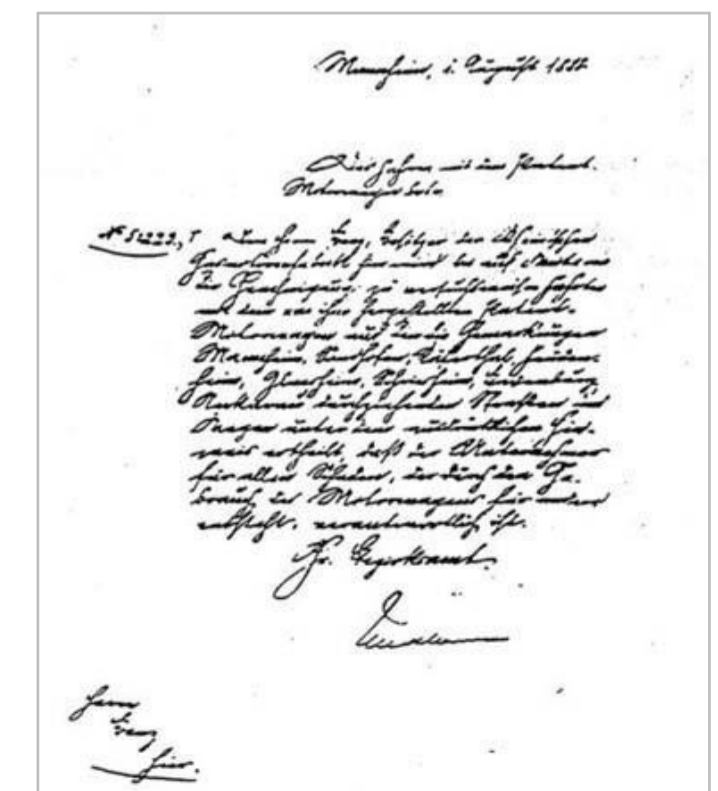 Mannheim, 1. August 1888
Das Fahren mit dem Patent-
Motorwagen betr.
No 5
Dem Herrn Benz, Besitzer der Rheinischen
Gasmotorenfabrik hier wird bis auf Weiteres
die Genehmigung zu versuchsweisen Fahrten
mit dem von ihm hergestellten Patent-
Motorwagen auf den die Gemarkungen
Mannheim, Sandhofen, Käferthal, Feuden-
heim, Ilvesheim, Schriesheim, Ladenburg,
Neckarau durchziehenden Straßen und
Wegen unter dem ausdrücklichen Hin-
weis ertheilt, daß der Unternehmer
für allen Schaden, der durch den Ge-
brauch des Motorwagens für andere
entsteht, verantwortlich ist.
Gr. Bezirksamt.
Herrn
Benz
hier.